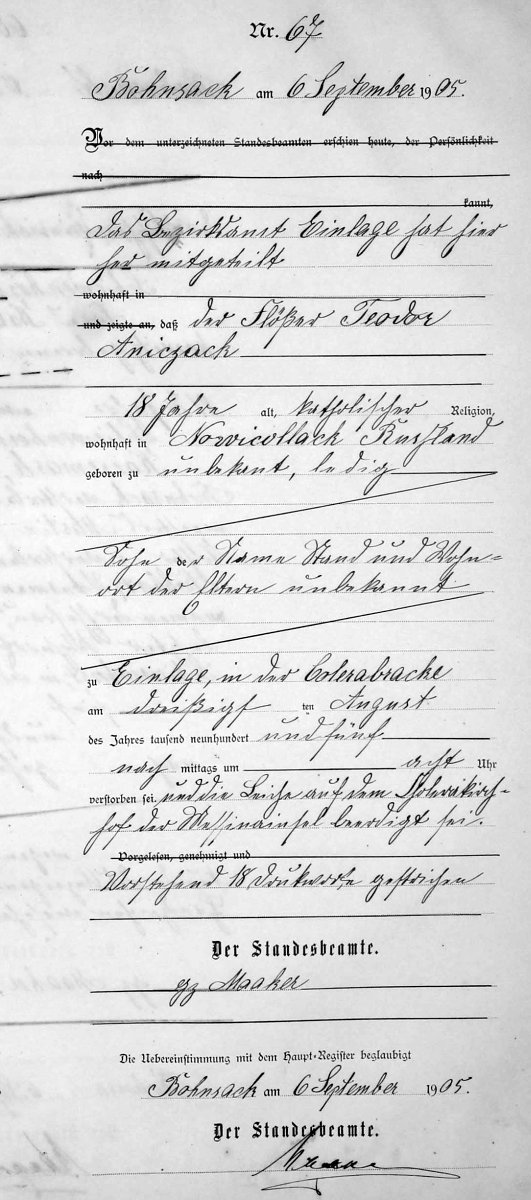 Nr. 67
Bohnsack am 6 September 1905.
Vor dem unterzeichneten Standesbeamten erschien heute, der Persönlichkeit
nach
kannt,
das Bezirksamt Einlage hat hier
her mitgeteilt
wohnhaft in
und zeigte an, daß der Flößer Teodor
Aniczack
18 Jahre alt, katholischer Religion,
wohnhaft in Nowicollack Rußland
geboren zu unbekant, ledig
Sohn der Name Stand und Wohn-
ort der Eltern unbekannt
zu Einlage, in der Colerabracke
am dreißigsten August
des Jahres tausend neunhundert und fünf
nach mittags um acht Uhr
verstorben sei und die Leiche auf dem Cholerakirch-
hof der Messinainsel beerdigt sei.
Vorgelesen, genehmigt und
Vorstehend 18 Drukworte gestrichen
Der Standesbeamte.
gz Maaker
Die Uebereinstimmung mit dem Haupt-Register beglaubigt
Bohnsack am 6 September 1905.
Der Standesbeamte.